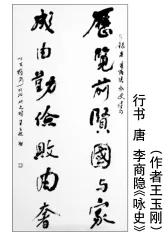 歷覽前賢國与家
成由勤儉敗由奢
行书 唐 李商隐《咏史》
（作者王玉刚）